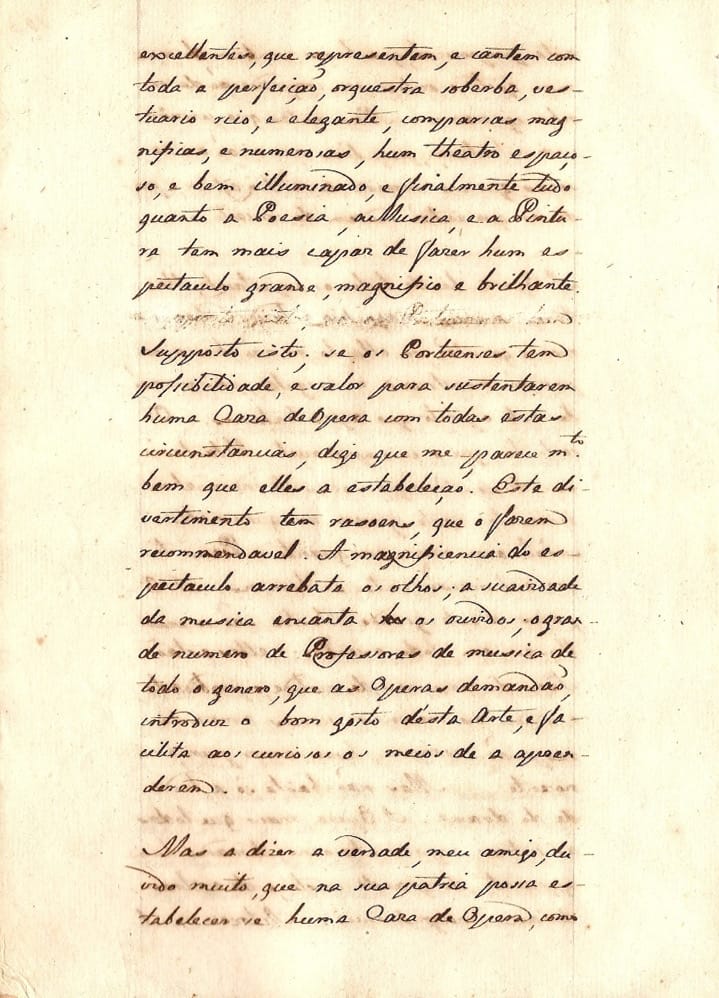 excellentes, que representem, e cantem com
toda a perfeição, orquestra soberba, ves-
tuario rico, e elegante, comparsas mag-
nificas, e numerosas, hum theatro espaço-
so, e bem illuminado, e finalmente tudo
quanto a Poesia, a Musica, e a Pintu-
ra tem mais capaz de fazer hum es-
pectaculo grande, magnifico e brilhante.
Supposto isto, se os Portuenses tem
possibilidade, e valor para sustentarem
huma Caza de Opera com todas estas
circunstancias, digo que me parece m.to
bem que elles a estabeleção. Este di-
vertimento tem rasoens, que o fazem
recommendavel. A magnificencia do es-
pectaculo arrebata os olhos; a suavidade
da musica encanta os ouvidos; o gran-
de numero de Professoras de musica de
todo o genero, que as Operas demandaõ,
introduz o bom gosto désta Arte, e fa-
cilita aos curiosos os meios de a apren-
derem.
Mas a dizer a verdade, meu amigo, du-
vido muito, que na sua patria possa es-
tabelecer se huma Caza de Opera, como